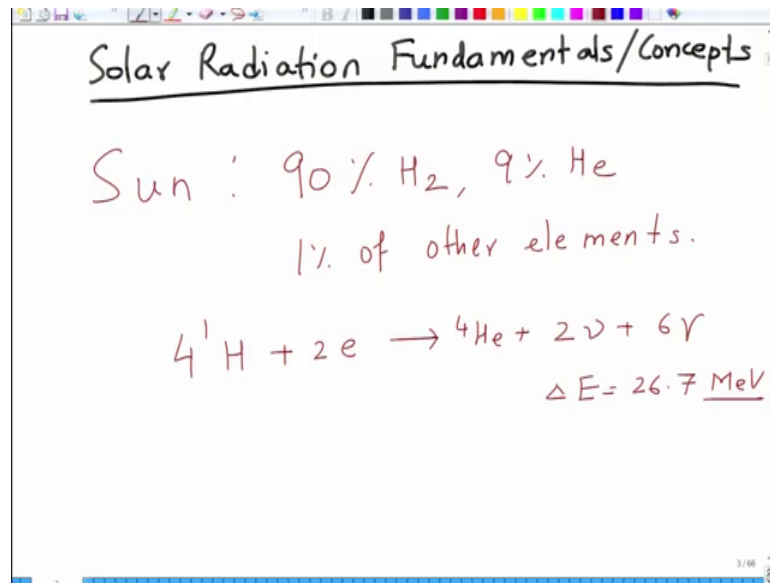 Solar Radiation Fundamentals/Concepts
Sun : 90 % H₂, 9 % He
1% of other elements.
4 ¹H + 2e → ⁴He + 2ν + 6γ
Δ E = 26.7 MeV
3/66